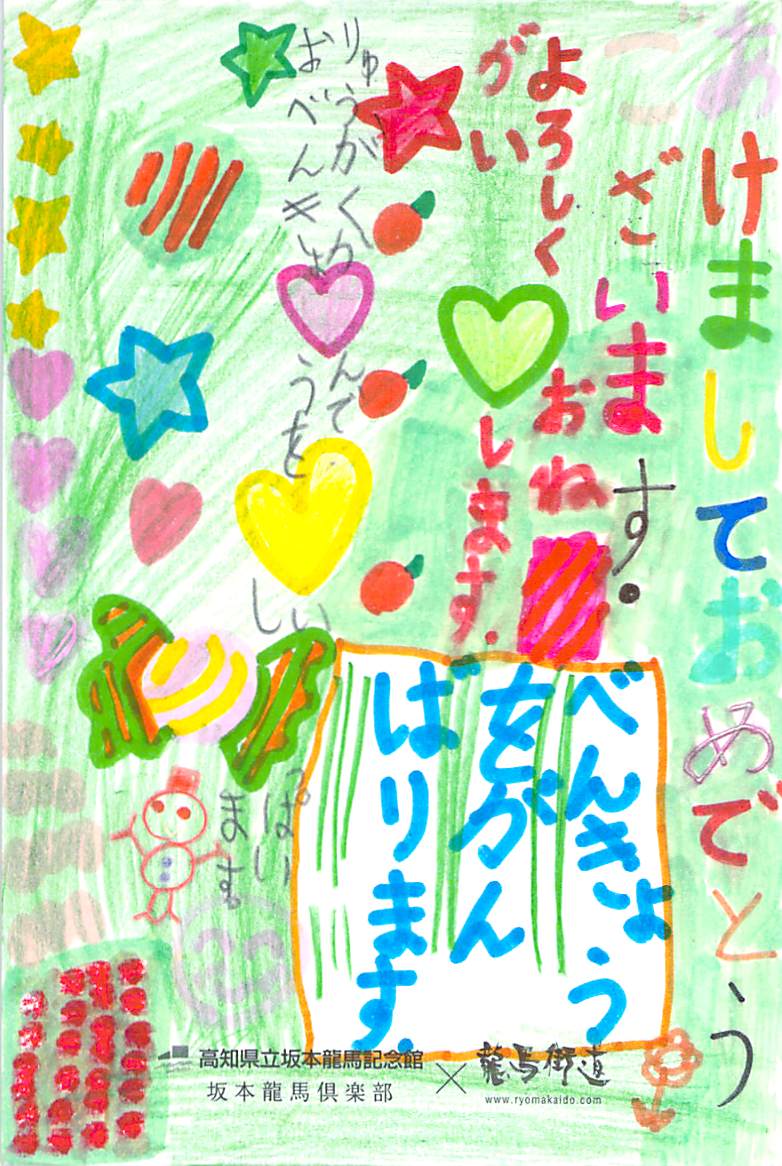 あけましておめでとう
ございます。
よろしくおね
がいします。
べんきょう
をがん
ばります。
りゅうがくかんでいっぱい
おべんきょうをします。
高知県立坂本龍馬記念館
坂本龍馬倶楽部
×
龍馬街道
www.ryomakaido.com